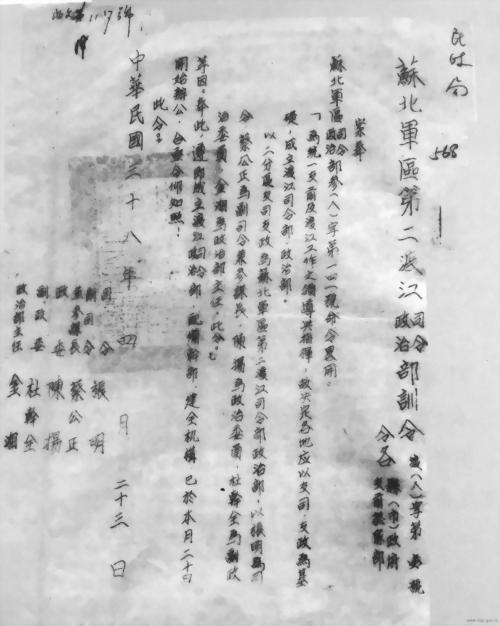 民政局
568
蘇北軍區第二渡江司令政治部訓令
字第 號
令各縣(市)政府
支前司令部
案奉
蘇北軍區司令政治部參(八)字第一〇一號命令畧開:
「為統一支前及渡江工作之領導與指揮,故決定各地应以支司、支政為基
礎,成立渡江司令部、政治部。
以二分區支司支政為蘇北軍區第二渡江司令部政治部,以張明為司
令,蔡公正為副司令兼參謀長,陳揚為政治委員,杜幹全為副政
治委員,金湖為政治部主任,此令。」
等因。奉此,遵即成立渡江司令政治部,配備幹部,建全机構,已於本月二十日
開始辦公,合亟令仰知照!
此令。
中華民國三十八年四月二十三日
司令 張明
副司令兼參謀長 蔡公正
政委 陳揚
副政委 杜幹全
政治部主任 金湖